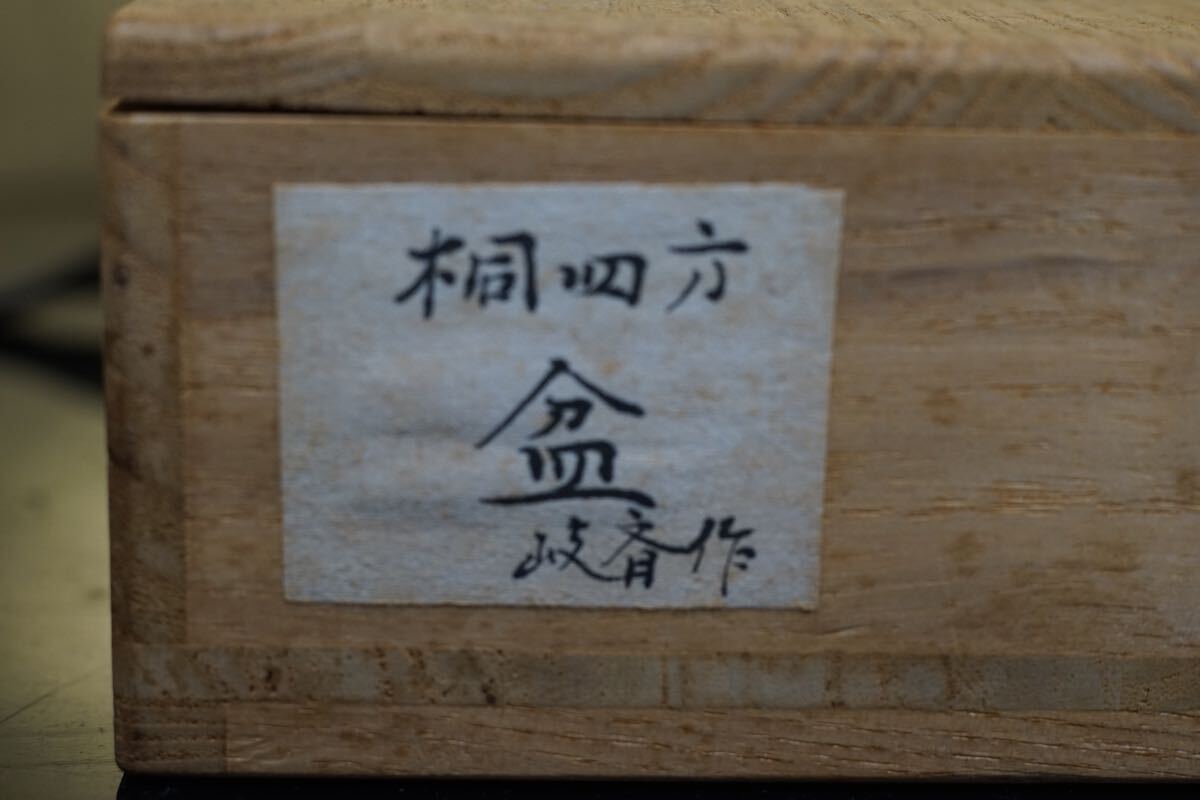 桐四方
盆
岐斉作